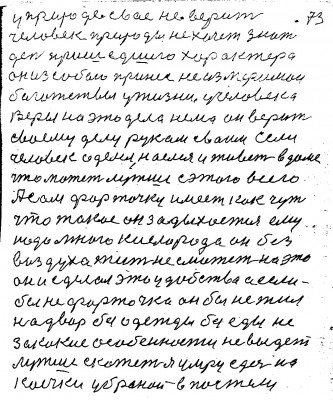 у природе свае не верит 73
человек природы не хочет знат
ден пришедшего характера
он из собою принес неизмеримаи
багатствы у жизни, у человека
веры на это дела нема он верит
своему делу рукам сваим Если
человек оделся, наелся и живет в доме
что может лутше с этого всего
А сам форточки имеет как чут
что такое он задыхается ему
надо много кислорода он без
воздуха жит не сможет на это
он и сделал это удобства а если-
бы не форточка он бы не жил
на двар без одежды без еды не
за какие особенности не выдет
лутше скажет я умру сдес на
коечки убраной в постели